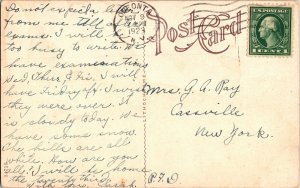 Do not expect a letter
from me till after
exams. I will be
too busy to write. We
have examinations
Wed, Thu & Fri. I will
have Friday off. I wish
they were over. It
is cloudy today. We
have some snow.
The hills are all
white. How are you
all? I will be home
Post Card
U.S. POSTAGE
1 CENT 1
Mrs. G. A. Ray
Cassville
New York.
P.T.O